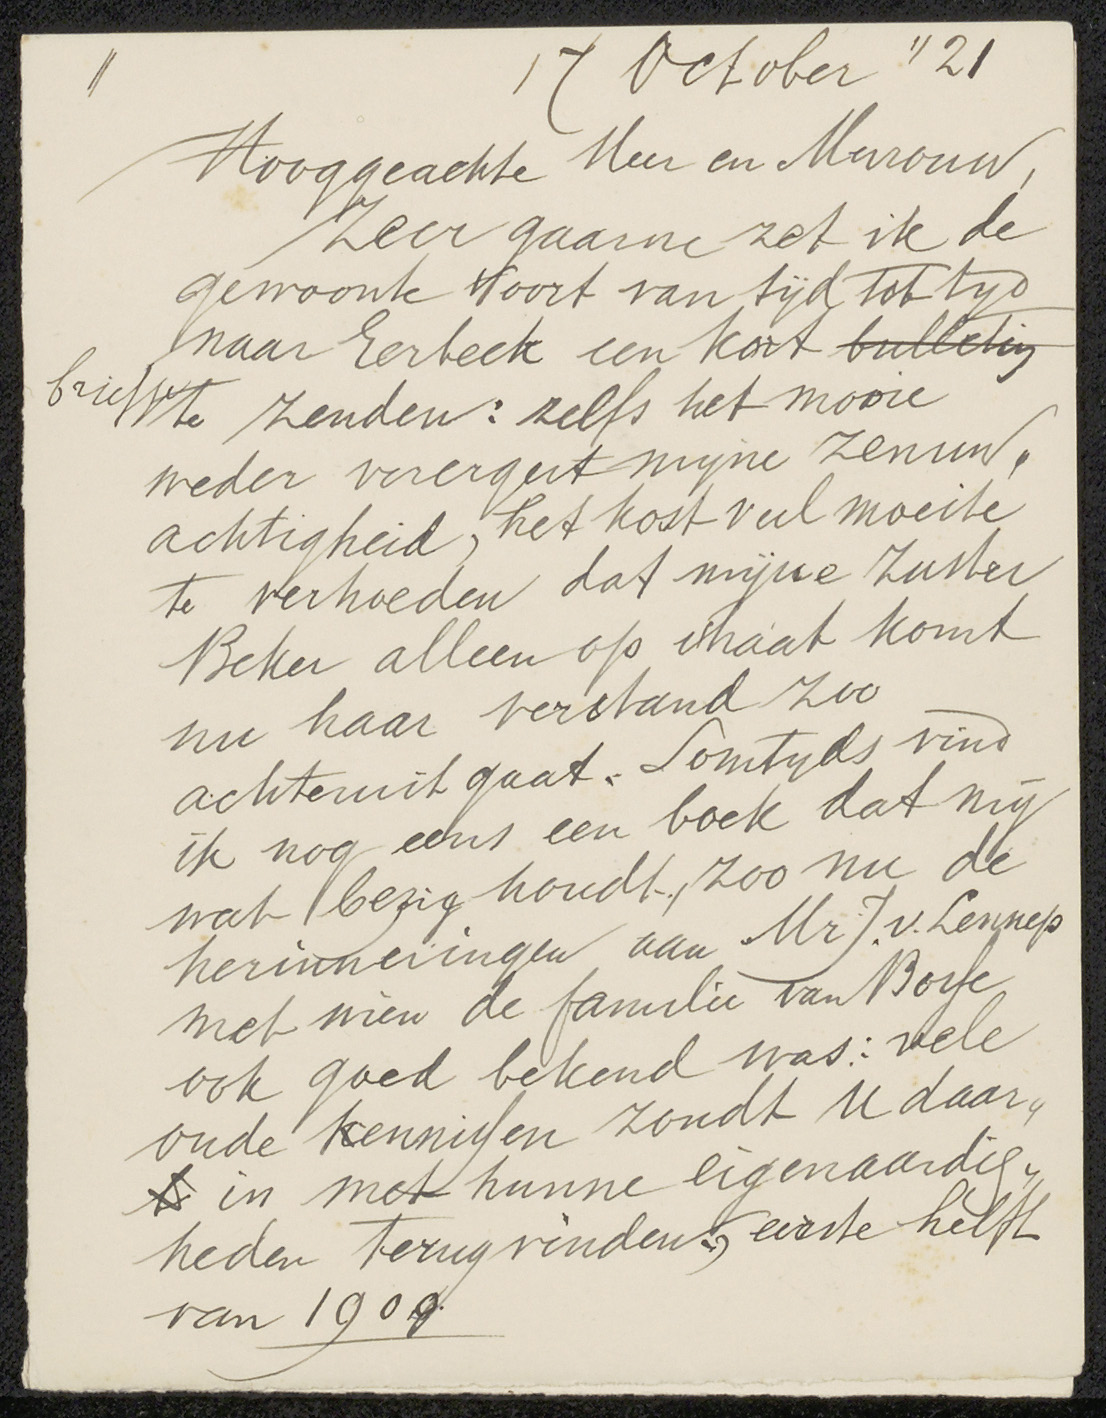 17 October "21
Hooggeachte Heer en Mevrouw,
Zeer gaarne zet ik de
gewoonte voort van tijd tot tyd
naar Eerbeek een kort bulletin
briefje te zenden: zelfs het mooie
weder verergert mijne zenuw„
achtigheid, het kost veel moeite
te verhoeden dat mijne zuster
Beker alleen op straat komt
nu haar verstand zoo
achteruit gaat. Somtyds vind
ik nog eens een boek dat mij
wat bezig houdt, zoo nu de
herinneringen aan Mr J. v. Lennep
met wien de familie van Bosse
ook goed bekend was: vele
oude kennissen zoudt U daar„
in met hunne eigenaardig„
heden terugvinden, eerste helft
van 1909